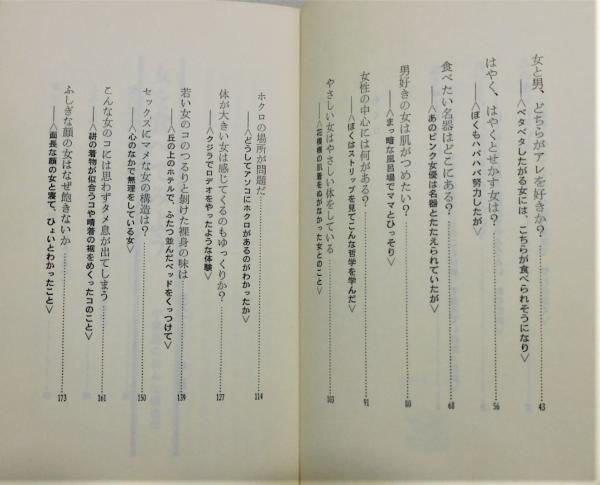 女と男、どちらがアレを好きか？……43
――〈ベタベタしたがる女には、こちらが食べられそうになり〉
はやく、はやくとせかす女は？……56
――〈ぼくもハバハバ努力したが〉
食べたい名器はどこにある？……68
――〈あのピンク女優は名器とたたえられていたが〉
男好きの女は肌がつめたい？……80
――〈まっ暗な風呂場でママとひっそり〉
女性の中心には何がある？……91
――〈ぼくはストリップを見てこんな哲学を学んだ〉
やさしい女はやさしい体をしている……103
――〈花模様の肌着をぬがなかった女とのこと〉
ホクロの場所が問題だ……114
――〈どうしてアソコにホクロがあるのがわかったか〉
体が大きい女は感じてくるのもゆっくりか？……127
――〈クジラでロデオをやったような体験〉
若い女のコのつるりと剝けた裸身の味は……139
――〈丘の上のホテルで、ふたつ並んだベッドをくっつけて〉
セックスにマメな女の構造は？……150
――〈心のなかで無理をしている女〉
こんな女のコには思わずタメ息が出てしまう……161
――〈絣の着物が似合うコや晴着の裾をめくったコのこと〉
ふしぎな顔の女はなぜ飽きないか……173
――〈面長な顔の女と寝て、ひょいとわかったこと〉